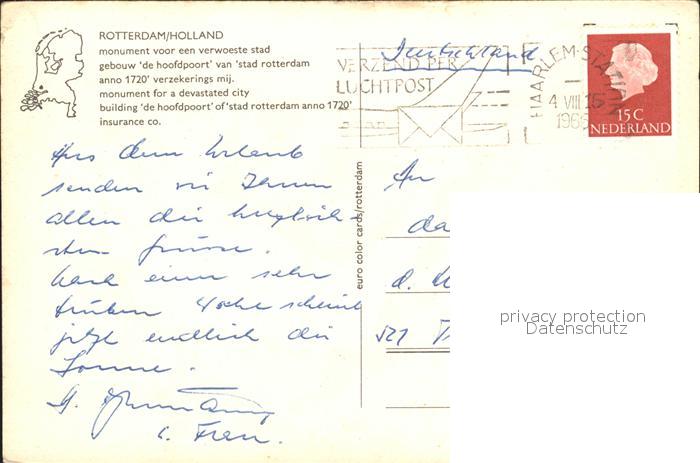 ROTTERDAM/HOLLAND
monument voor een verwoeste stad
gebouw 'de hoofdpoort' van 'stad rotterdam
anno 1720' verzekerings mij.
monument for a devastated city
building 'de hoofdpoort' of 'stad rotterdam anno 1720'
insurance co.
Deutschland
VERZEND PER
LUCHTPOST
HAARLEM-STATION
4 VIII 16
1966
15 C
NEDERLAND
Aus dem Urlaub
senden wir Ihnen
allen die herzlich-
sten Grüsse.
Nach einer sehr
trüben Woche scheint
jetzt endlich die
Sonne.
u. Frau.
euro color cards/rotterdam
An
da
d.
521
privacy protection
Datenschutz